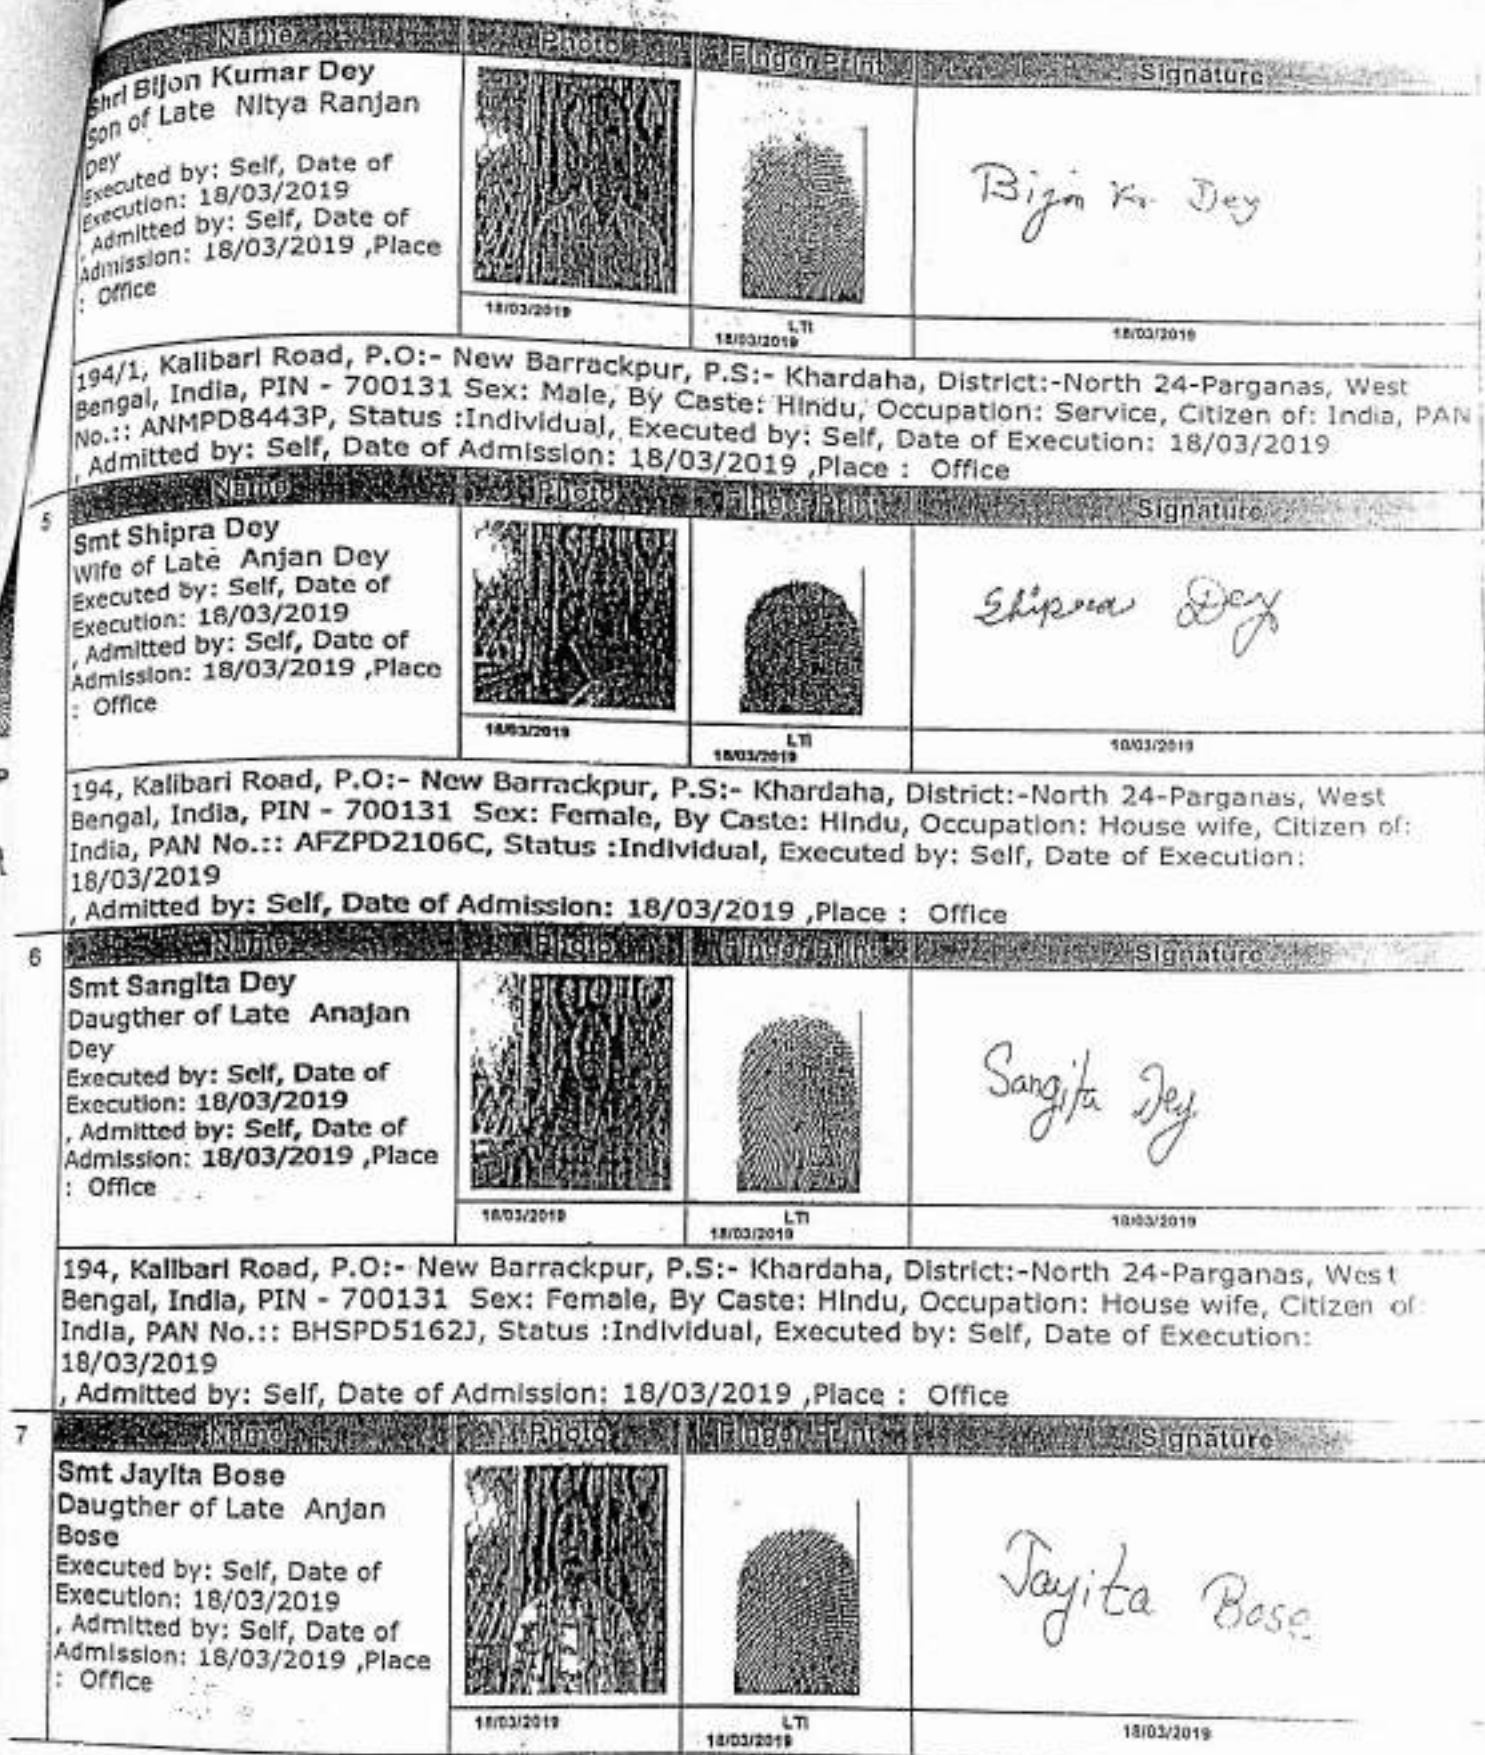 Name Photo Finger Print Signature
Shri Bijon Kumar Dey
Son of Late Nitya Ranjan
Dey
Executed by: Self, Date of
Execution: 18/03/2019
, Admitted by: Self, Date of
Admission: 18/03/2019 ,Place
: Office
Bijon Kr Dey
18/03/2019
LTI
18/03/2019
18/03/2019
194/1, Kalibari Road, P.O:- New Barrackpur, P.S:- Khardaha, District:-North 24-Parganas, West
Bengal, India, PIN - 700131 Sex: Male, By Caste: Hindu, Occupation: Service, Citizen of: India, PAN
No.:: ANMPD8443P, Status :Individual, Executed by: Self, Date of Execution: 18/03/2019
, Admitted by: Self, Date of Admission: 18/03/2019 ,Place : Office
5
Name Photo Finger Print Signature
Smt Shipra Dey
Wife of Late Anjan Dey
Executed by: Self, Date of
Execution: 18/03/2019
, Admitted by: Self, Date of
Admission: 18/03/2019 ,Place
: Office
Shipra Dey
18/03/2019
LTI
18/03/2019
18/03/2019
194, Kalibari Road, P.O:- New Barrackpur, P.S:- Khardaha, District:-North 24-Parganas, West
Bengal, India, PIN - 700131 Sex: Female, By Caste: Hindu, Occupation: House wife, Citizen of:
India, PAN No.:: AFZPD2106C, Status :Individual, Executed by: Self, Date of Execution:
18/03/2019
, Admitted by: Self, Date of Admission: 18/03/2019 ,Place : Office
6
Name Photo Finger Print Signature
Smt Sangita Dey
Daugther of Late Anajan
Dey
Executed by: Self, Date of
Execution: 18/03/2019
, Admitted by: Self, Date of
Admission: 18/03/2019 ,Place
: Office
Sangita Dey
18/03/2019
LTI
18/03/2019
18/03/2019
194, Kalibari Road, P.O:- New Barrackpur, P.S:- Khardaha, District:-North 24-Parganas, West
Bengal, India, PIN - 700131 Sex: Female, By Caste: Hindu, Occupation: House wife, Citizen of:
India, PAN No.:: BHSPD5162J, Status :Individual, Executed by: Self, Date of Execution:
18/03/2019
, Admitted by: Self, Date of Admission: 18/03/2019 ,Place : Office
7
Name Photo Finger Print Signature
Smt Jayita Bose
Daugther of Late Anjan
Bose
Executed by: Self, Date of
Execution: 18/03/2019
, Admitted by: Self, Date of
Admission: 18/03/2019 ,Place
: Office
Jayita Bose
18/03/2019
LTI
18/03/2019
18/03/2019